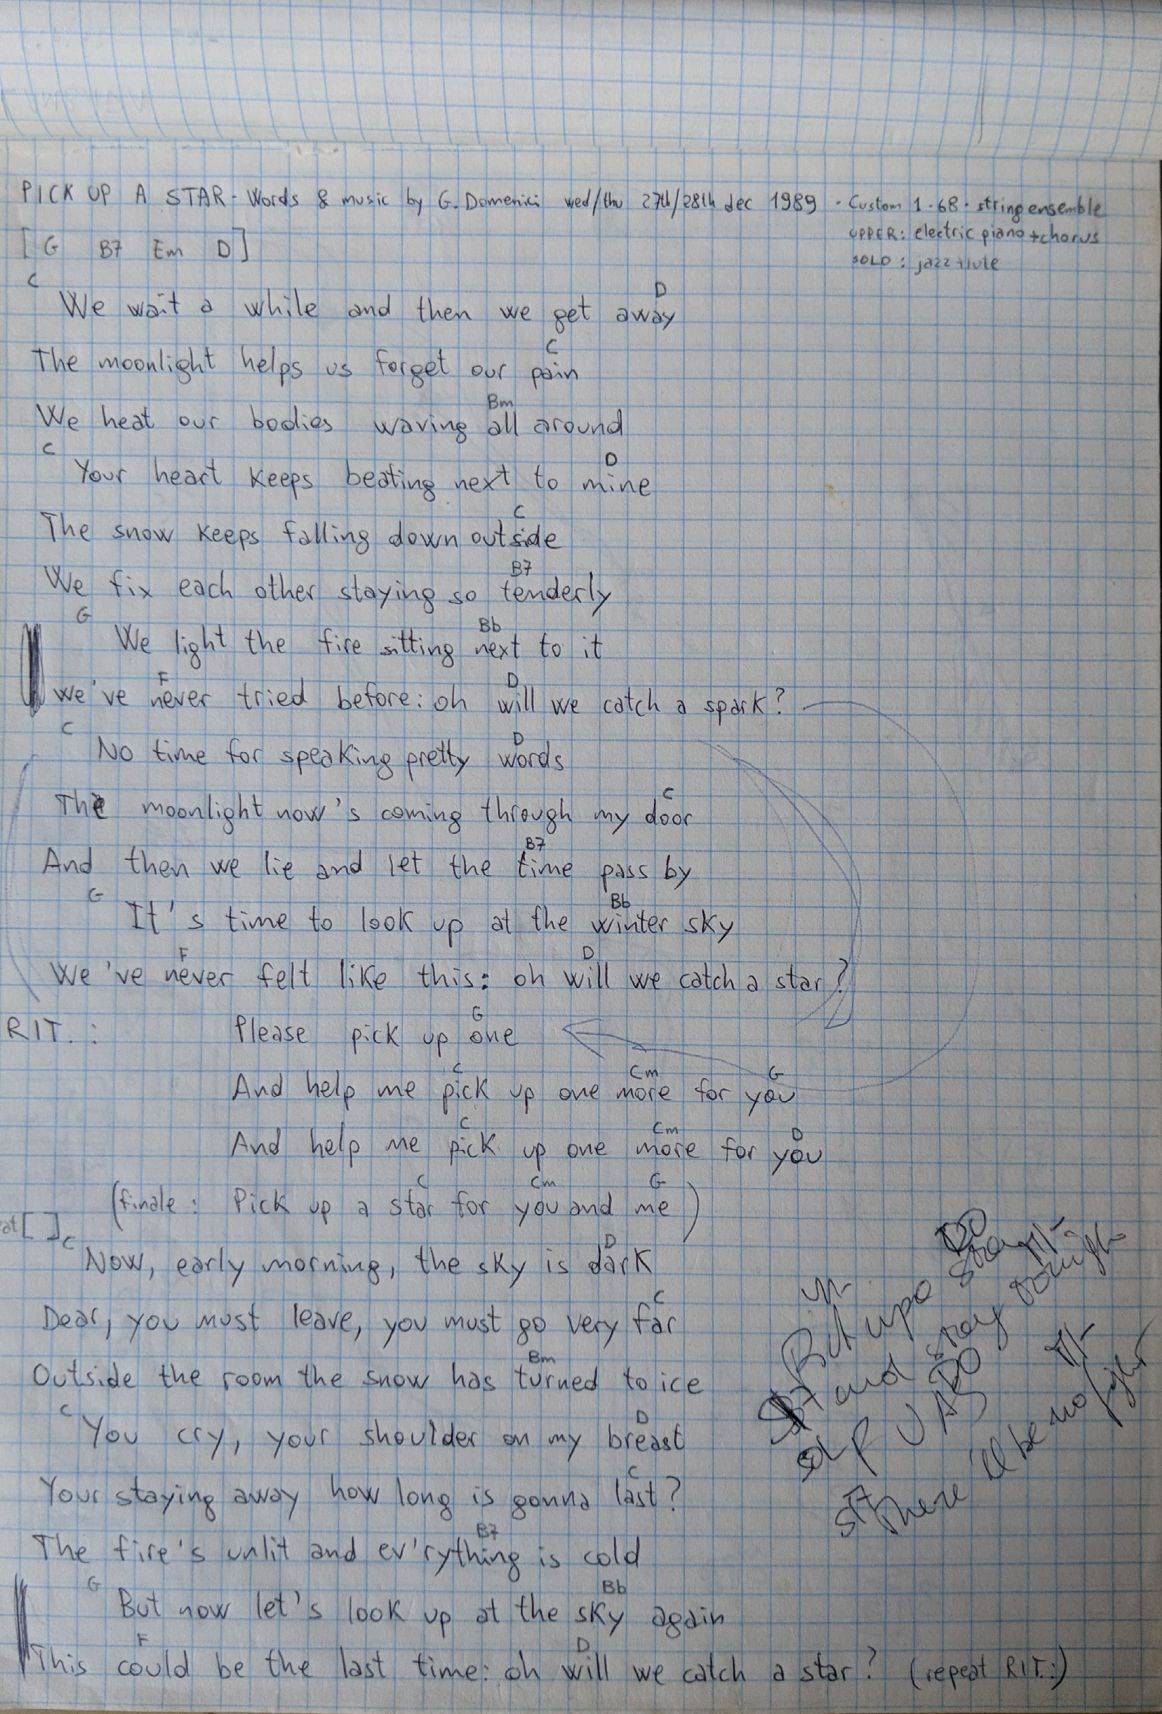 PICK UP A STAR - Words & music by G. Domenici wed/thu 27th/28th dec 1989 - Custom 1-68 - string ensemble
UPPER: electric piano + chorus
SOLO: jazz flute
[G B7 Em D]
C D
We wait a while and then we get away
C
The moonlight helps us forget our pain
Bm
We heat our bodies waving all around
C D
Your heart keeps beating next to mine
C
The snow keeps falling down outside
B7
We fix each other staying so tenderly
G Bb
We light the fire sitting next to it
F D
We've never tried before: oh will we catch a spark?
C D
No time for speaking pretty words
C
The moonlight now's coming through my door
B7
And then we lie and let the time pass by
G Bb
It's time to look up at the winter sky
F D
We've never felt like this: oh will we catch a star?
G
RIT.: Please pick up one
C Cm G
And help me pick up one more for you
C Cm D
And help me pick up one more for you
C Cm G
(finale: Pick up a star for you and me)
at [ ]
C D
Now, early morning, the sky is dark
C
Dear, you must leave, you must go very far
Bm
Outside the room the snow has turned to ice
C D
You cry, your shoulder on my breast
C
Your staying away how long is gonna last?
B7
The fire's unlit and ev'rything is cold
G Bb
But now let's look up at the sky again
F D
This could be the last time: oh will we catch a star? (repeat RIT.:)
DO
and stay tonight
There'll be no